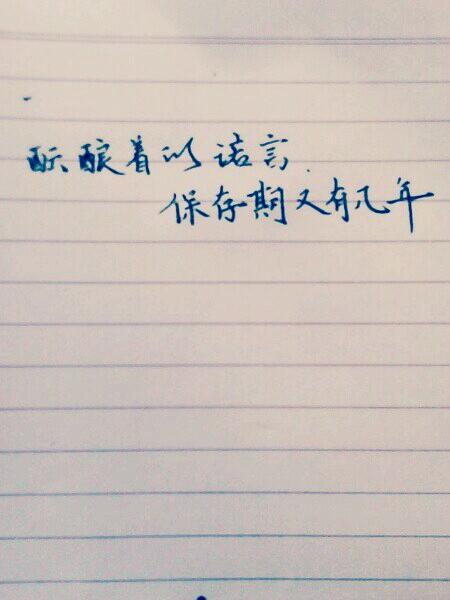 酝酿着以诺言
保存期又有几年